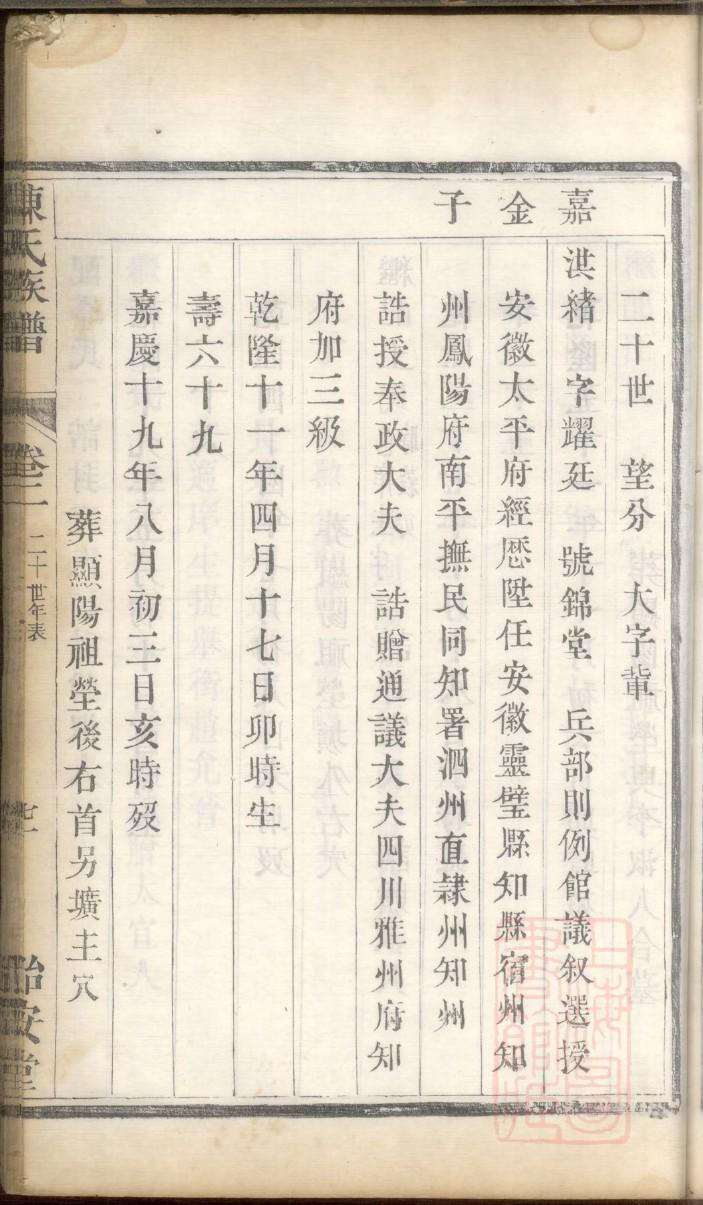 嘉金子
二十世 望分 大字輩
洪緒 字耀廷 號錦堂 兵部則例館議叙選授
安徽太平府經歷陞任安徽靈璧縣知縣宿州知
州鳳陽府南平撫民同知署泗州直隸州知州
誥授奉政大夫 誥贈通議大夫四川雅州府知
府加三級
乾隆十一年四月十七日卯時生
壽六十九
嘉慶十九年八月初三日亥時歿
葬顯陽祖塋後右首另壙主穴
陳氏族譜 卷二 二十世年表 怡安堂